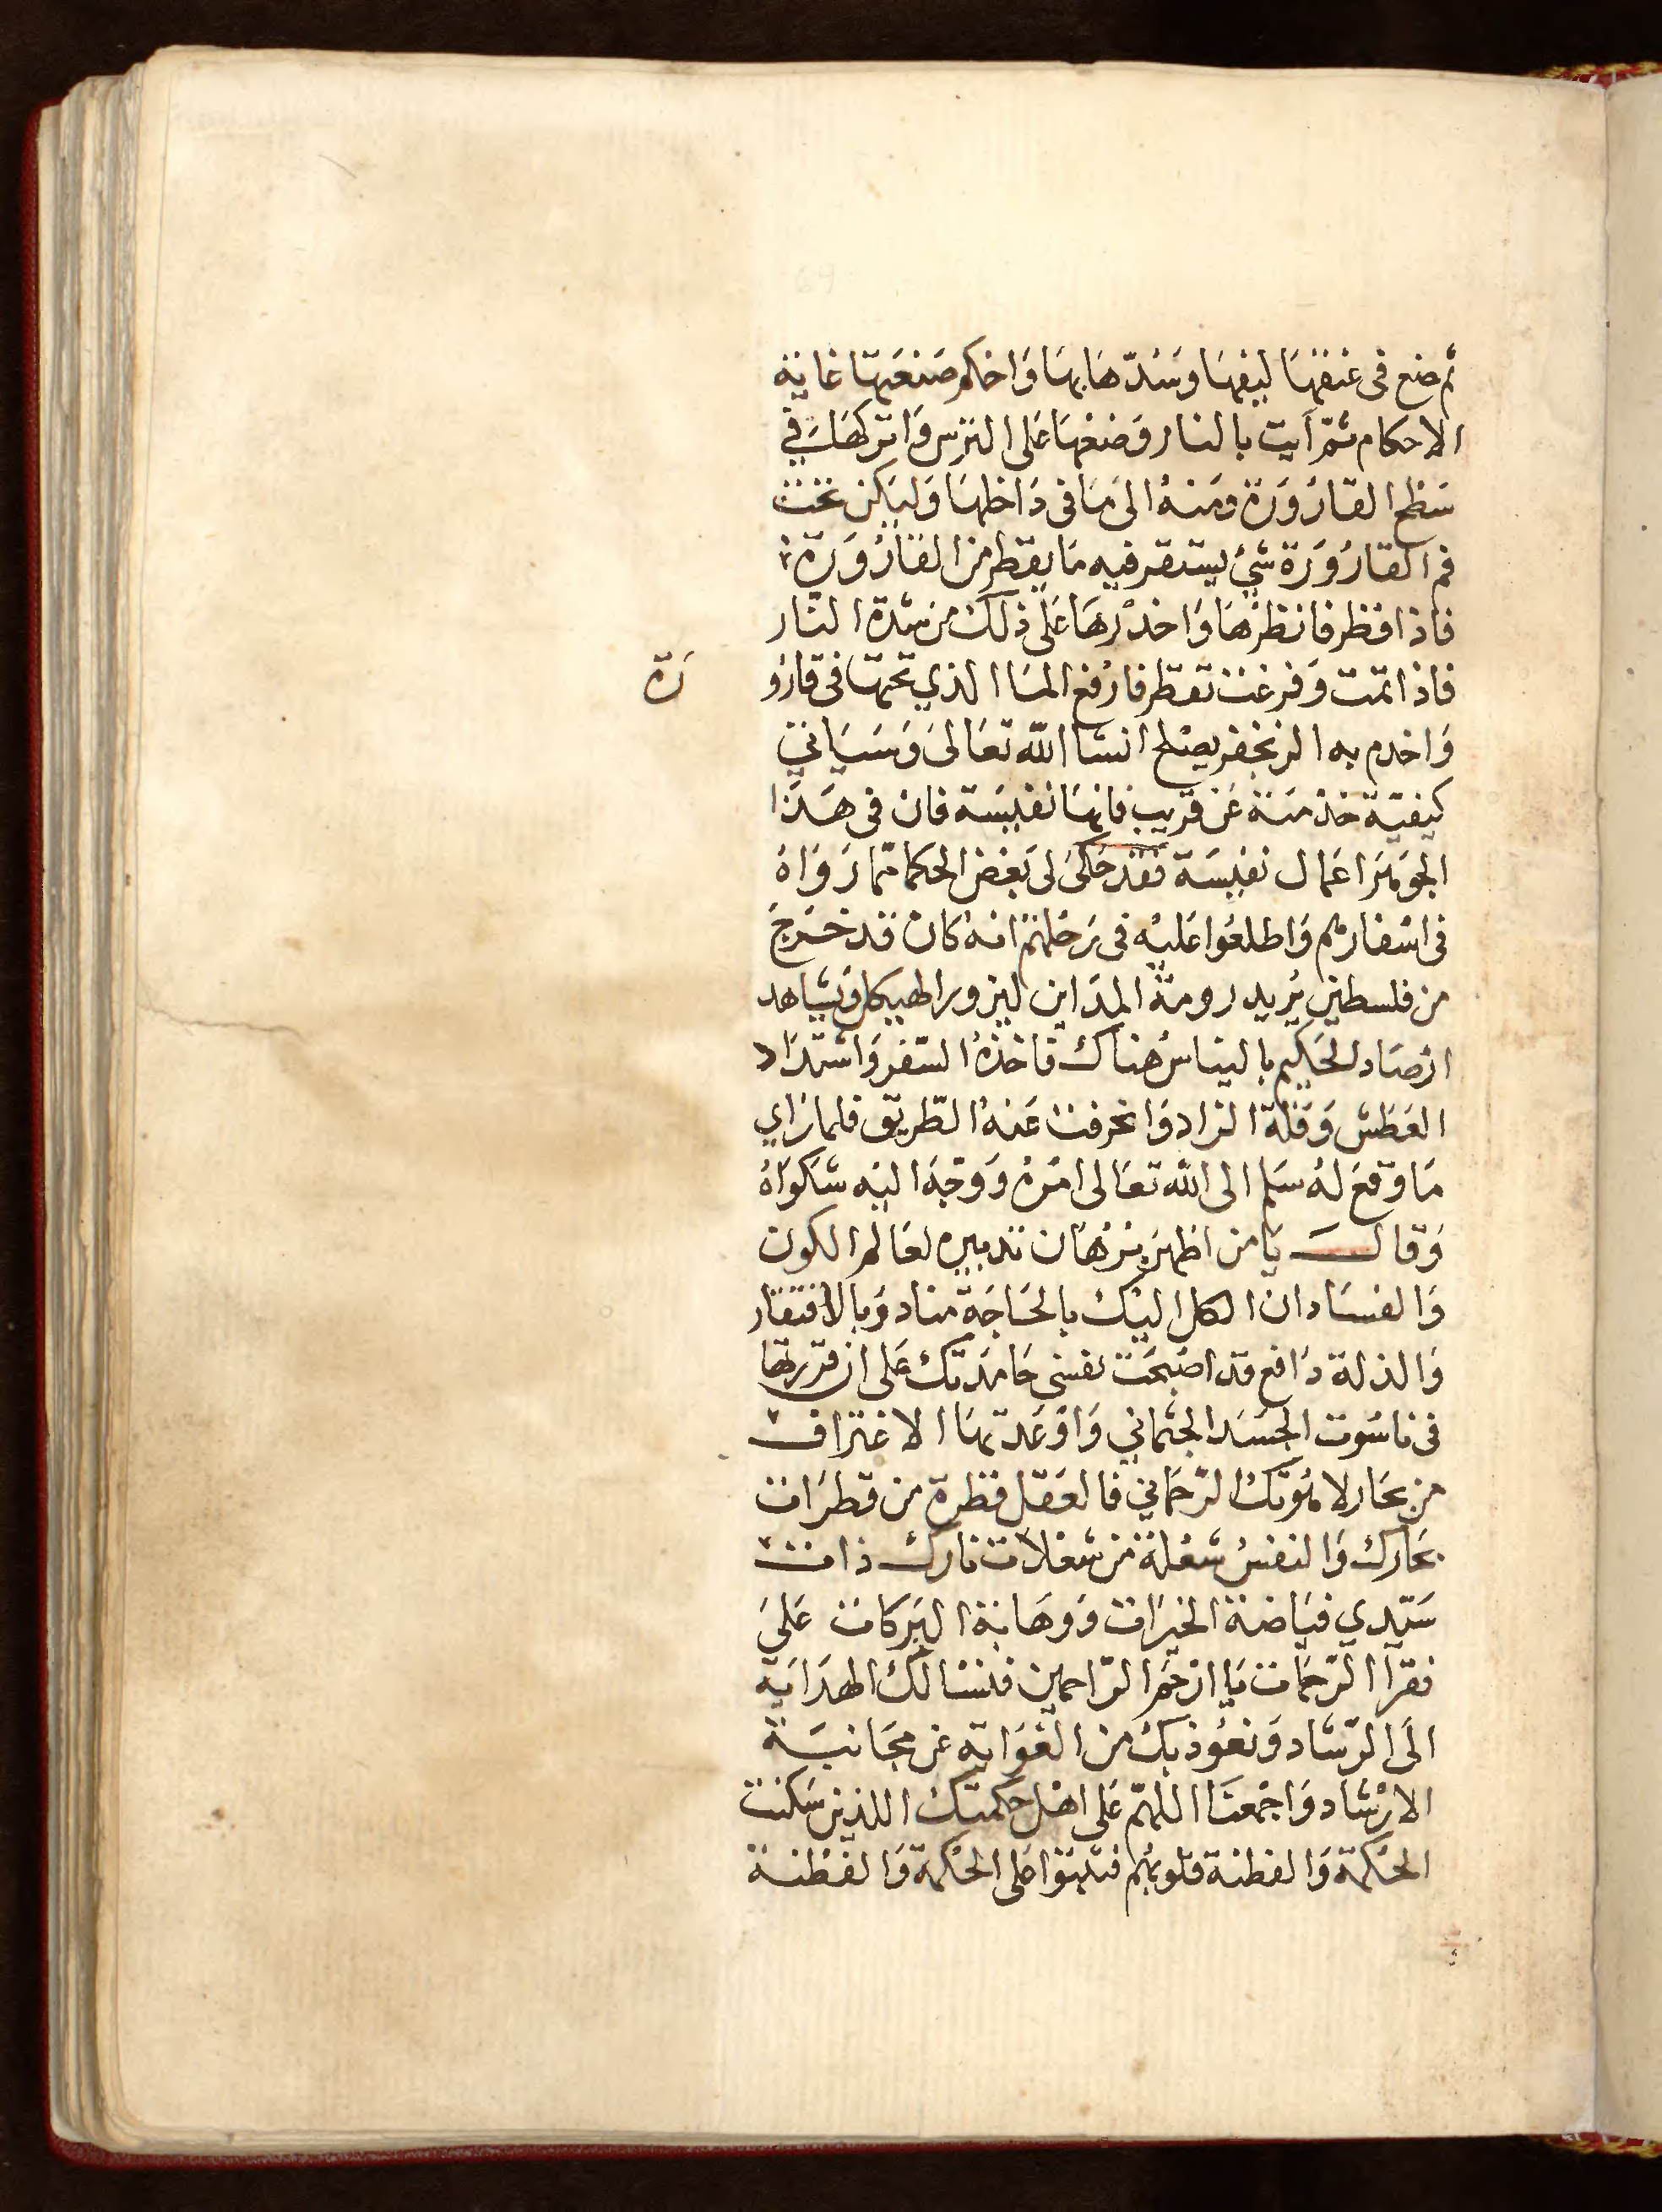 ثم ضع في عنقها ليفها وسدّها بها واحكم صنعتها غاية
الاحكام ثمّ آيت بالنار وضعها على الترس واتركها في
سطح القارورة ومنه الى ما في داخلها وليكن تحت
فم القارورة شيء يستقر فيه ما يقطر من القارورة
فاذا قطر فانظرها واحذرها على ذلك من شدة النّار
فاذا تمّت وفرغت تقطر فارفع الماا الذي تحتها في قارو
رة
واخدم به الزنجفر يصلح انشا الله تعالى وسياتي
كيفيّة خذمته عن قريب فانها نفيسة فان في هذا
الجوهر اعمال نفيسة فقد حكى لى بعض الحكما ممّا رواه
في اسفارهم واطلعوا عليه في رحلتهم انه كان قد خرج
من فلسطين يريد رومة المداين ليزورا الهيكل ويشاهد
ارصاد الحكيم بالينا‌س هناك فاخذه السّفر واشتداد
العطش وقلة الزاد وانحرفت عنه الطّريق فلما راي
ما وقع له سلم الى الله تعالى امره ووجه اليه شكواه
وقال يا من اظهر برهان تدبيره لعالم الكون
والفساد ان الكل اليك بالحاجة مناد وبالافتقار
والذلة دافع قد اصبحت نفسي حامدتك على ان قررتها
في ناسوت الجسد الجثماني واوعدتها الاغتراف
من بحار لاهوتك الرّحماني فالعقل قطرة من قطرات
بحارك والنفس شعلة من شعلات نارك ذات
سيّدي فياضة الخيرات ووهابة البركات على
فقراا الرّحمات يا ارحم الرّاحمين فنسالك الهداية
الى الرّشاد ونعوذ بك من الغواية عن مجانبة
الارشاد واجمعنا اللهمّ على اهل حكمتك اللذين سكنت
الحكمة والفطنة قلوبهم فثبتوا على الحكمة والفطنة